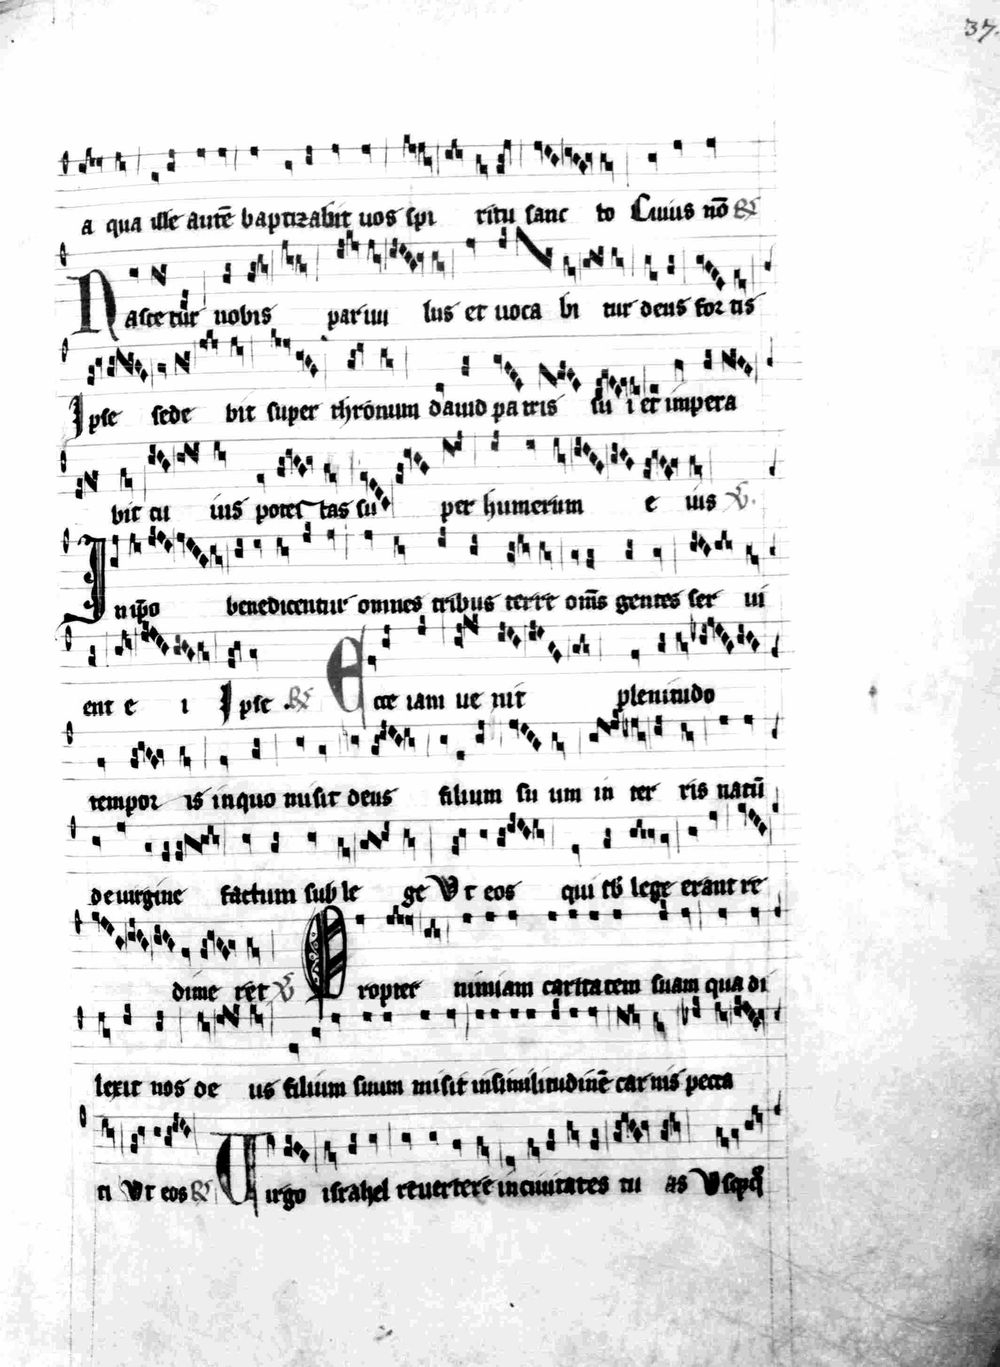 37.
a qua ille autē baptizabit uos spi ritu sanc to Cuius nō R
Nascetur nobis paruu lus et uoca bi tur deus fortis
Ipse sede bit super thronum dauid patris su i et impera
bit cu ius potestas su per humerum e ius V.
In ipo benedicentur omnes tribus terre om̄s gentes ser ui
ent e i Ipse R Ecce iam ue nit plenitudo
tempor is inquo misit deus filium su um in ter ris natū
de uirgine factum sub le ge Vt eos qui sb lege erant re
dime ret V Propter nimiam caritatem suam qua di
lexit nos de us filium suum misit insimilitudinē carnis pecca
ti Vt eos R Uirgo israhel reuertere inciuitates tu as Vsqꝫq̊